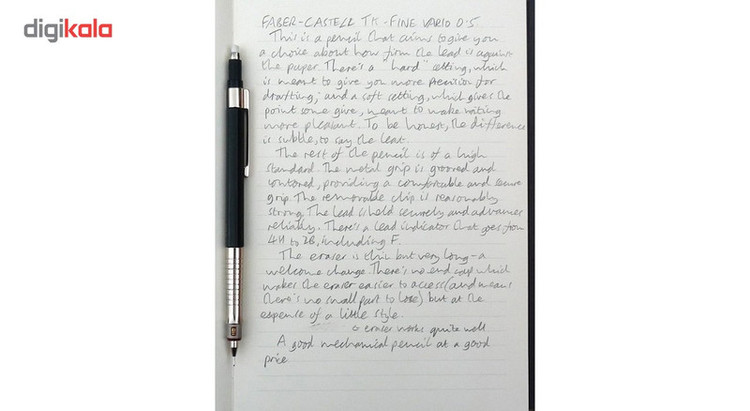 digikala
FABER-CASTELL TK-FINE VARIO 0.5
This is a pencil that aims to give you
a choice about how firm the lead is against
the paper. There's a "hard" setting, which
is meant to give you more precision for
drafting; and a soft setting, which gives the
point some give, meant to make writing
more pleasant. To be honest, the difference
is subtle, to say the least.
The rest of the pencil is of a high
standard. The metal grip is grooved and
contoured, providing a comfortable and secure
grip. The removable clip is reasonably
strong. The lead is held securely and advances
reliably. There's a lead indicator that goes from
4H to 2B, including F.
The eraser is thin but very long - a
welcome change. There's no end cap which
makes the eraser easier to access (and means
there's no small part to lose) but at the
expense of a little style.
eraser works quite well
A good mechanical pencil at a good
price